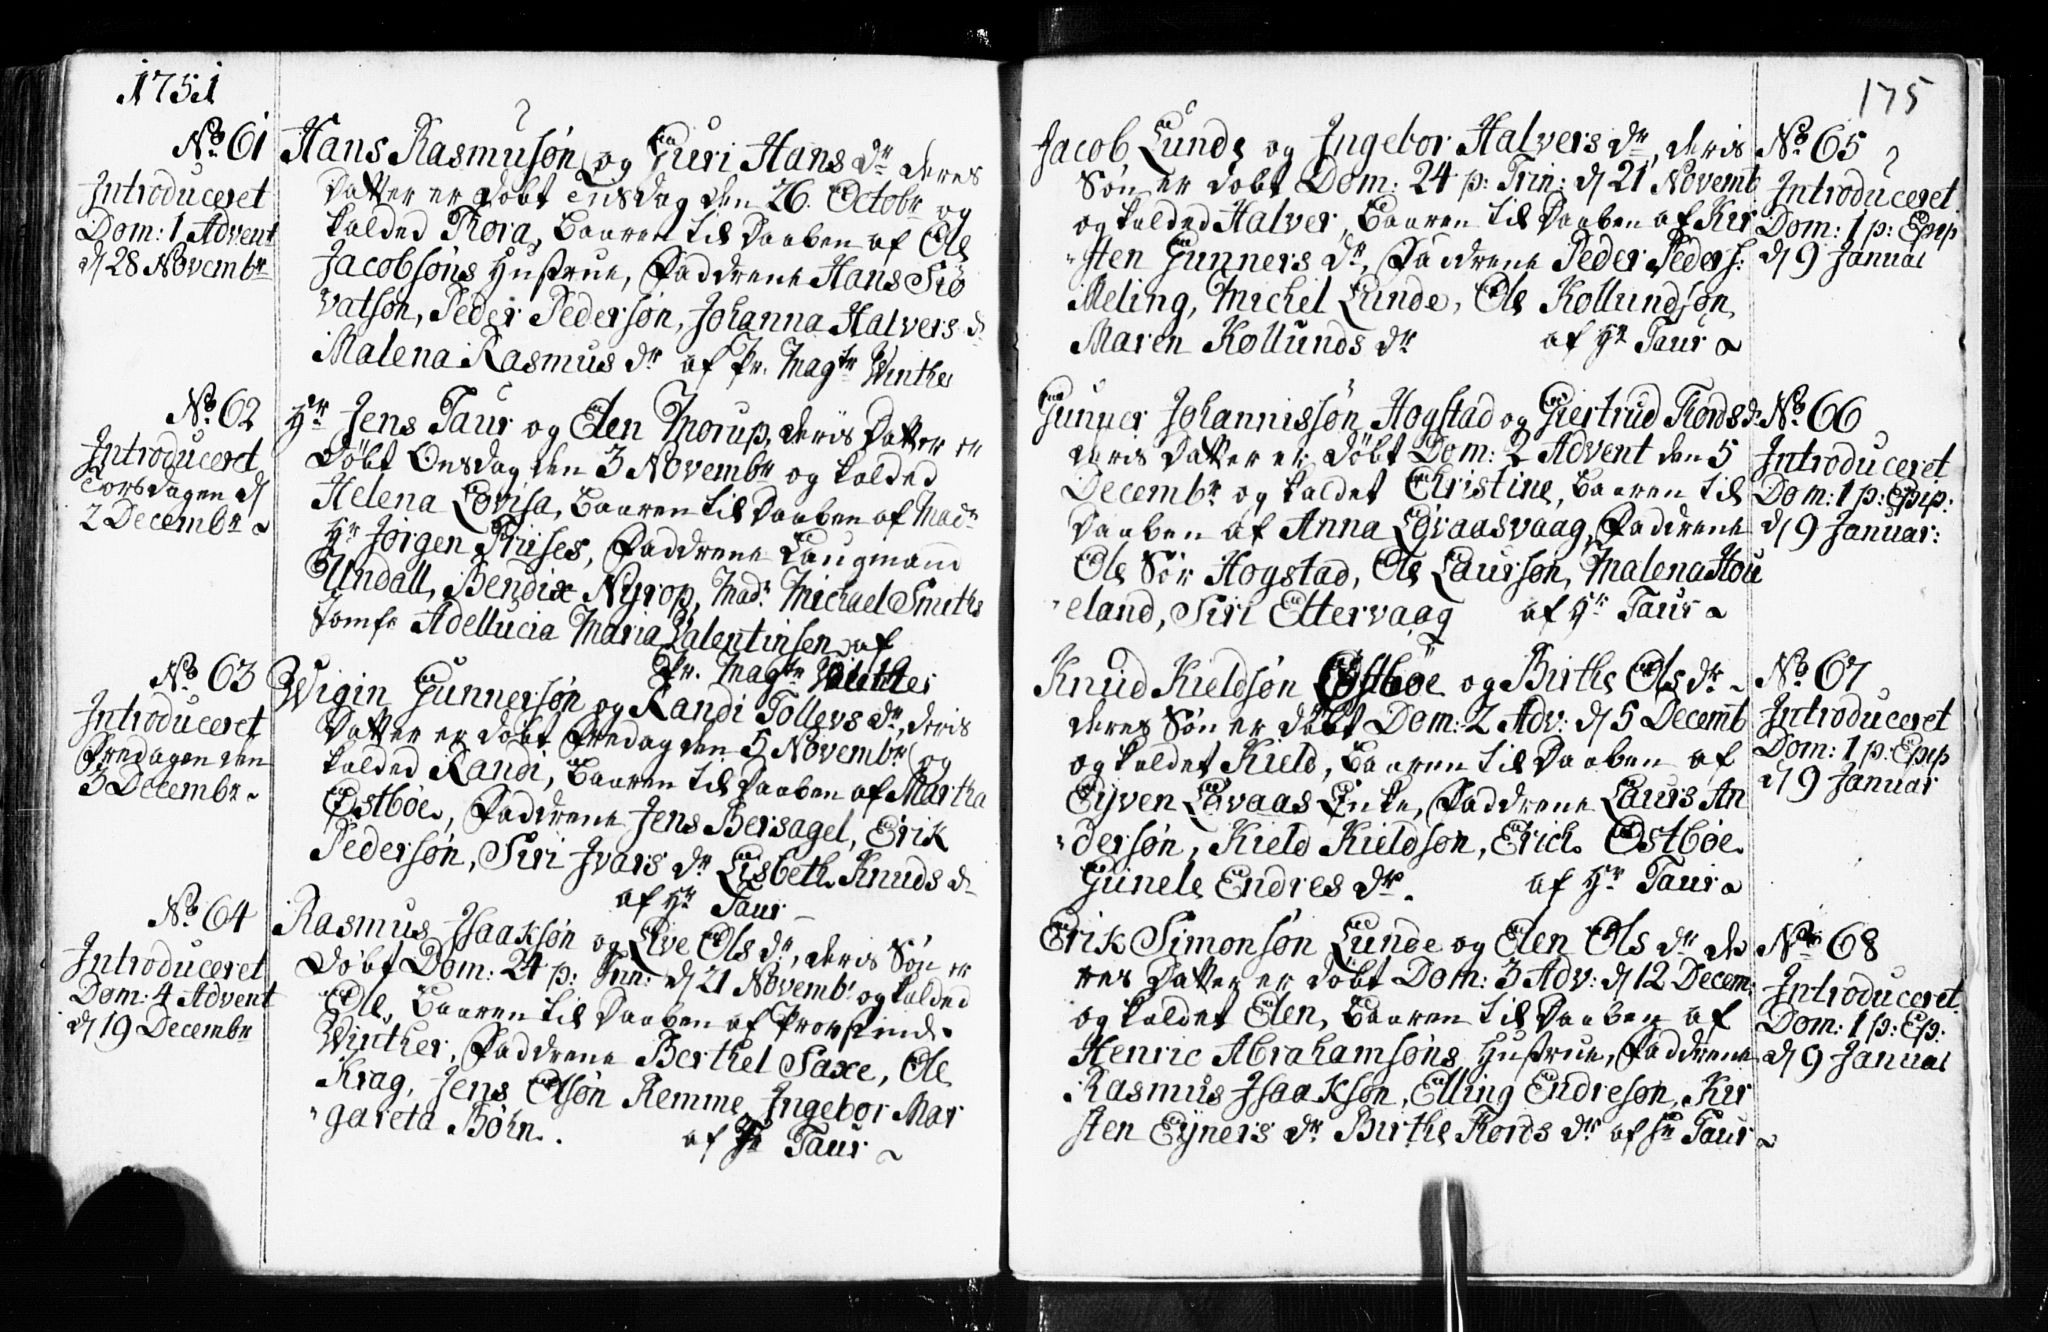 1751
No 61
Introduceret
Dom: 1 Advent
d 28 Novembr
Hans Rasmusøn og Guri Hans dr deres
Datter er døbt Tisdag den 26. Octobr og
kalded Thora, Baaren til Daaben af Ole
Jacobsøns Hustrue, Faddrene Hans Siø
vatsøn, Peder Pedersøn, Johanna Halvers d
Malena Rasmus dr af Pr. Magtr Winther
No 62
Introduceret
Torsdagen d
2 Decembr
Hr Jens Taur og Elen Thorup, deris Datter er
Døbt Onsdag den 3 Novembr og kalded
Helena Lovisa, Baaren til Daaben af Madr
Hr Jørgen Friises, Faddrene Laugmand
Undall, Bendix Nyrop, Madr Michael Smiths
Jomfr Adellucia Maria Valentinsen af
Pr. Magtr Winther
No 63
Introduceret
Fredagen den
3 Decembr
Wigin Gunnersøn og Randi Tollevs dr, deris
Datter er døbt Fredag den 5 Novembr og
kalded Randi, Baaren til Daaben af Martha
Østbøe, Faddrene Jens Bersagel, Erik
Pedersøn, Siri Ivars dr Lisbeth Knuds d
af Hr Taur
No 64
Introduceret
Dom: 4 Advent
d 19 Decembr
Rasmus Isaaksøn og Elve Ols dr, deris Søn er
Døbt Dom: 24 p: Trin: d 21 Novemb og kalded
Ole, Baaren til Daaben af Provstinde
Winther, Faddrene Berthel Saxe, Ole
Krag, Jens Olsøn Remme, Ingebor Mar
gareta Bøhn. af Hr Taur
175
Jacob Lunde og Ingebor Halvers dr, deris
Søn er døbt Dom: 24 p: Trin: d 21 Novemb
og kalded Halver, Baaren til Daaben af Kir
sten Gunners dr, Faddrene Peder Peders:
Meling, Michel Lunde, Ole Kollundsøn,
Maren Kollunds dr af Hr Taur
No 65
Introduceret
Dom: 1 p: Epip
d 9 Januar
Gunner Johannissøn Hogstad og Giertrud Thords d
deris Datter er døbt Dom: 2 Advent den 5
Decembr og kaldet Christine, Baaren til
Daaben af Anna Løvaasvaag, Faddrene
Ole Sør Hogstad, Ole Laursøn, Malena Hou
eland, Siri Ettervaag af Hr Taur
No 66
Introduceret
Dom: 1 p: Epip:
d 9 Januar:
Knud Kieldsøn Østbøe og Birthe Ols dr
deres Søn er døbt Dom: 2 Adv: d 5 Decemb
og kaldet Kield, Baaren til Daaben af
Eyven Løvaas Enke, Faddrene Laurs An
dersøn, Kield Kieldsøn, Erich Østbøe
Gunele Endres dr. af Hr Taur
No 67
Introduceret
Dom: 1 p: Epip
d 9 Januar
Erik Simonsøn Lunde og Elen Ols dr de
res Datter er døbt Dom: 3 Adv: d 12 Decem:
og kaldet Elen, Baaren til Daaben af
Henric Abrahamsøns Hustrue, Faddrene
Rasmus Isaaksøn, Elling Endresøn, Kir
sten Eyners dr Birthe Thords dr af Hr Taur
No 68
Introduceret
Dom: 1 p: Ep:
d 9 Januar